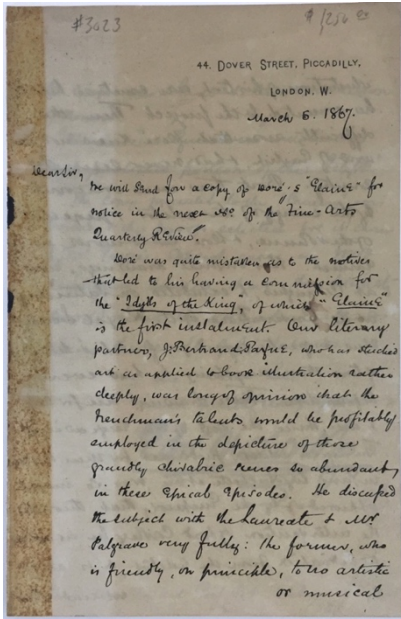 #3023
$1250.00
44. DOVER STREET, PICCADILLY,
LONDON, W.
March 6. 1867.
Dear Sir,
We will send for a copy of Doré's "Elaine" for
notice in the next No. of the Fine-Arts
Quarterly Review.
Doré was quite mistaken as to the motives
that led to his having a commission for
the "Idylls of the King", of which "Elaine"
is the first instalment. Our literary
partner, J. Bertrand Payne, who has studied
art as applied to book illustration rather
deeply, was long of opinion that the
Frenchman's talents would be profitably
employed in the depicture of those
grandly chivalric scenes so abundant
in these Epical Episodes. He discussed
the subject with the Laureate & Mr
Palgrave very fully: the former, who
is friendly, on principle, to no artistic
or musical